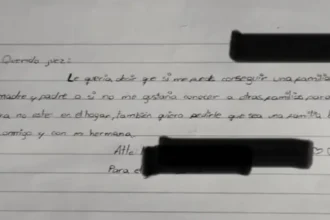 Querido juez:
Le quería decir que si me puede conseguir una familia
madre y padre o si no me gustaría conocer a otras familias para
no estar en el hogar, también quiero pedirle que sea una familia
conmigo y con mi hermana.
Att:
Para e